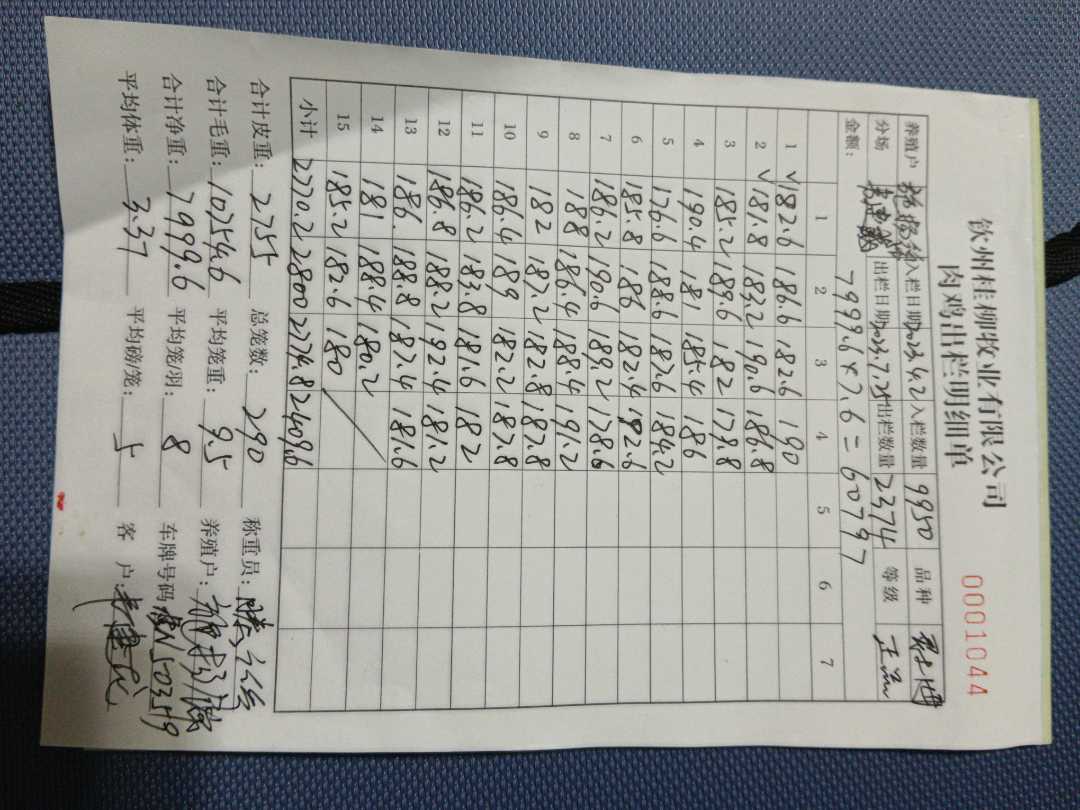 钦州桂柳牧业有限公司
肉鸡出栏明细单
0001044
养殖户 入栏日期 2023.4.2 入栏数量 9950 品种
分场 出栏日期 2023.7.25 出栏数量 2374 等级 正品
金额: 7999.6×7.6=60797
1 2 3 4 5 6 7
1 √ 182.6 186.6 182.6 190
2 √ 181.8 183.2 190.6 186.8
3 185.2 189.6 182 179.8
4 190.4 181 185.4 186
5 176.6 188.6 187.6 184.2
6 185.8 186 182.4 182.6
7 186.2 190.6 189.2 178.6
8 188 186.4 188.4 191.2
9 182 187.2 182.8 187.8
10 186.4 189 182.2 187.8
11 186.2 183.8 181.6 182
12 186.8 188.2 192.4 181.2
13 186. 188.8 187.4 181.6
14 181 188.4 180.2
15 185.2 182.6 180
小计 2770.2 2800 2774.8 2409.6
合计皮重: 2755 总笼数: 290 称重员:
合计毛重: 10754.6 平均笼重: 9.5 养殖户:
合计净重: 7999.6 平均笼羽: 8 车牌号码
平均体重: 3.37 平均磅/笼: 5 客 户: